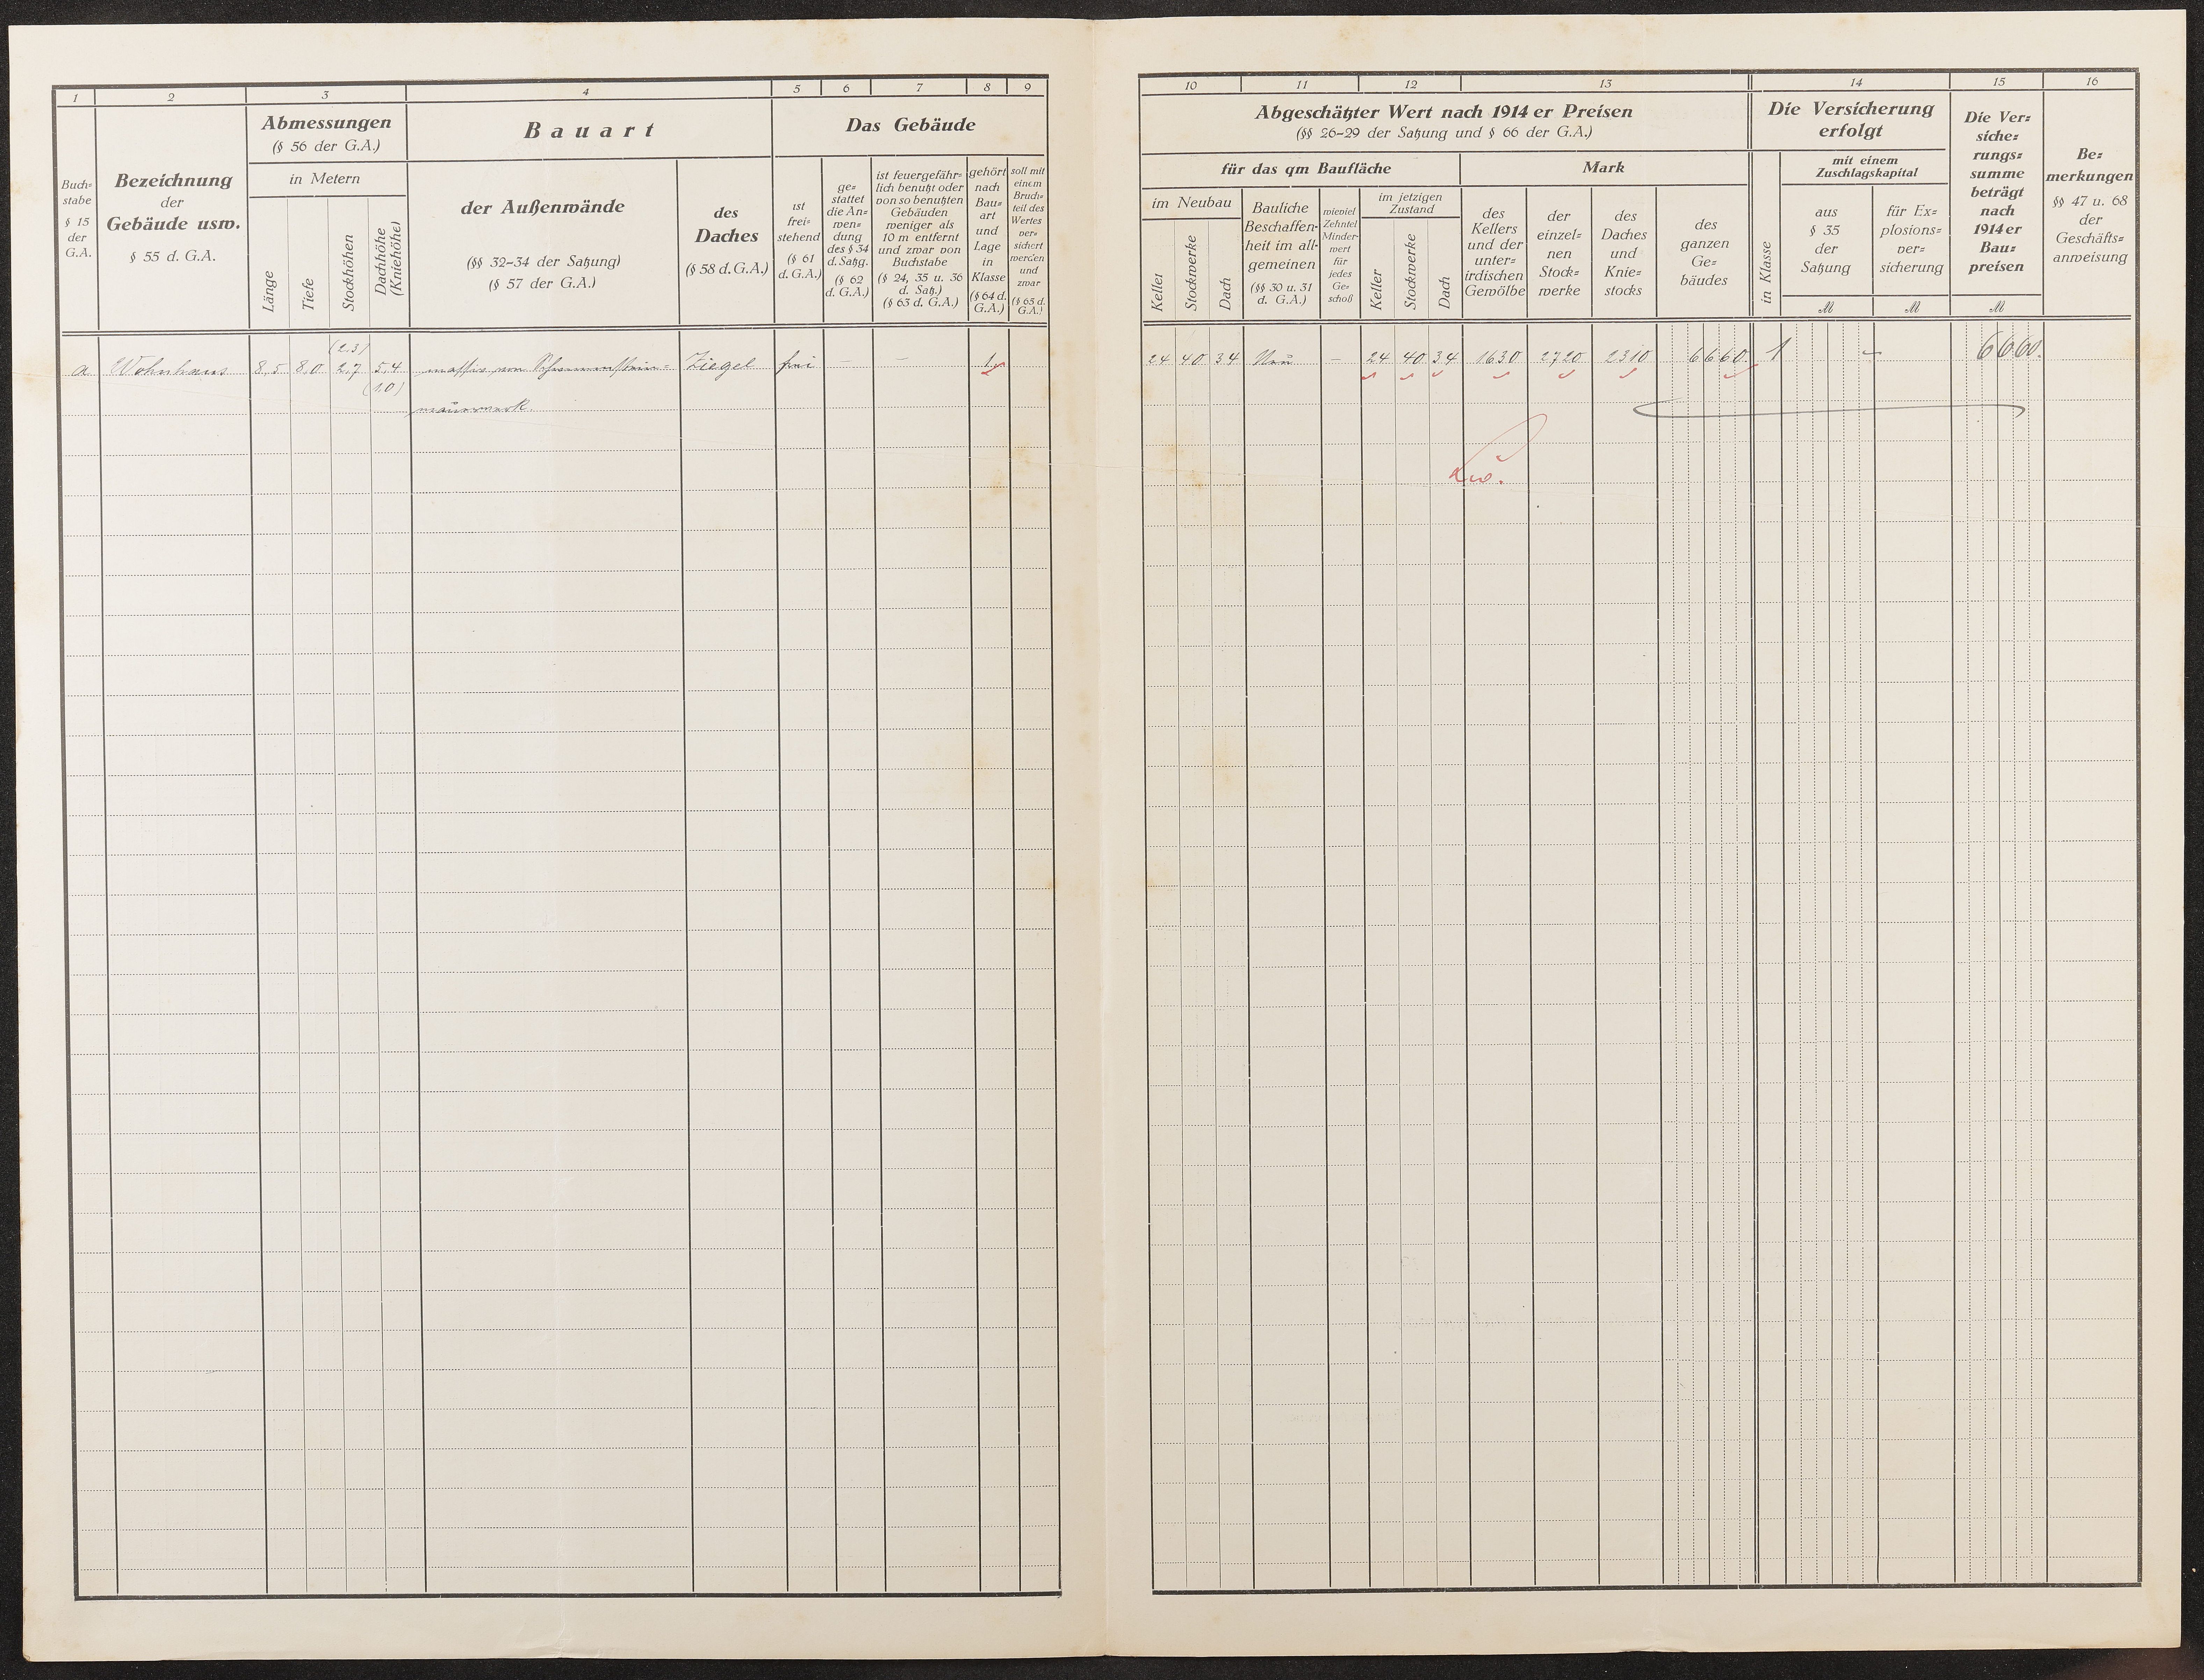 1 2 3 4 5 6 7 8 9
Abmessungen
(§ 56 der G.A.)
in Metern
Bauart
Das Gebäude
Buch=
stabe
§ 15
der
G.A.
Bezeichnung
der
Gebäude usw.
§ 55 d. G.A.
Länge
Tiefe
Stockhöhen
Dachhöhe
(Kniehöhe)
der Außenwände
(§§ 32-34 der Satzung)
(§ 57 der G.A.)
des
Daches
(§ 58 d.G.A.)
ist
frei=
stehend
(§ 61
d. G.A.)
ge=
stattet
die An=
wen=
dung
des § 34
d. Satzg.
(§ 62
d. G.A.)
ist feuergefähr=
lich benutzt oder
von so benutzten
Gebäuden
weniger als
10 m entfernt
und zwar von
Buchstabe
(§ 24, 35 u. 36
d. Satz.)
(§ 63 d. G.A.)
gehört
nach
Bau=
art
und
Lage
in
Klasse
(§ 64 d.
G.A.)
soll mit
einem
Bruch=
teil des
Wertes
ver=
sichert
werden
und
zwar
(§ 65 d.
G.A.)
(2,3)
a. Wohnhaus 8,5 8,0 2,7 5,4 massiv von Schwemmstein= Ziegel frei – – 1.
(1,0)
mauerwerk.
10 11 12 13 14 15 16
Abgeschätzter Wert nach 1914 er Preisen
(§§ 26-29 der Satzung und § 66 der G.A.)
für das qm Baufläche
Mark
im Neubau
Keller
Stockwerke
Dach
Bauliche
Beschaffen=
heit im all=
gemeinen
(§§ 30 u. 31
d. G.A.)
wieviel
Zehntel
Minder=
wert
für
jedes
Ge=
schoß
im jetzigen
Zustand
Keller
Stockwerke
Dach
des
Kellers
und der
unter=
irdischen
Gewölbe
der
einzel=
nen
Stock=
werke
des
Daches
und
Knie=
stocks
des
ganzen
Ge=
bäudes
Die Versicherung
erfolgt
in Klasse
mit einem
Zuschlagskapital
aus
§ 35
der
Satzung
ℳ
für Ex=
plosions=
ver=
sicherung
ℳ
Die Ver=
siche=
rungs=
summe
beträgt
nach
1914 er
Bau=
preisen
ℳ
Be=
merkungen
§§ 47 u. 68
der
Geschäfts=
anweisung
24 40 34 Neu – 24 40 34 1630 2720 2310 6660 1 – 6660.